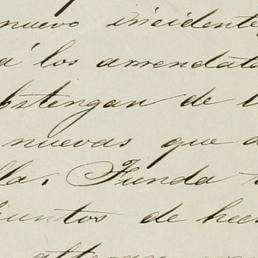 nuevo incidente
á los arrendata
bstengan de l
nuevas que d
lla. Funda
juntos de hec